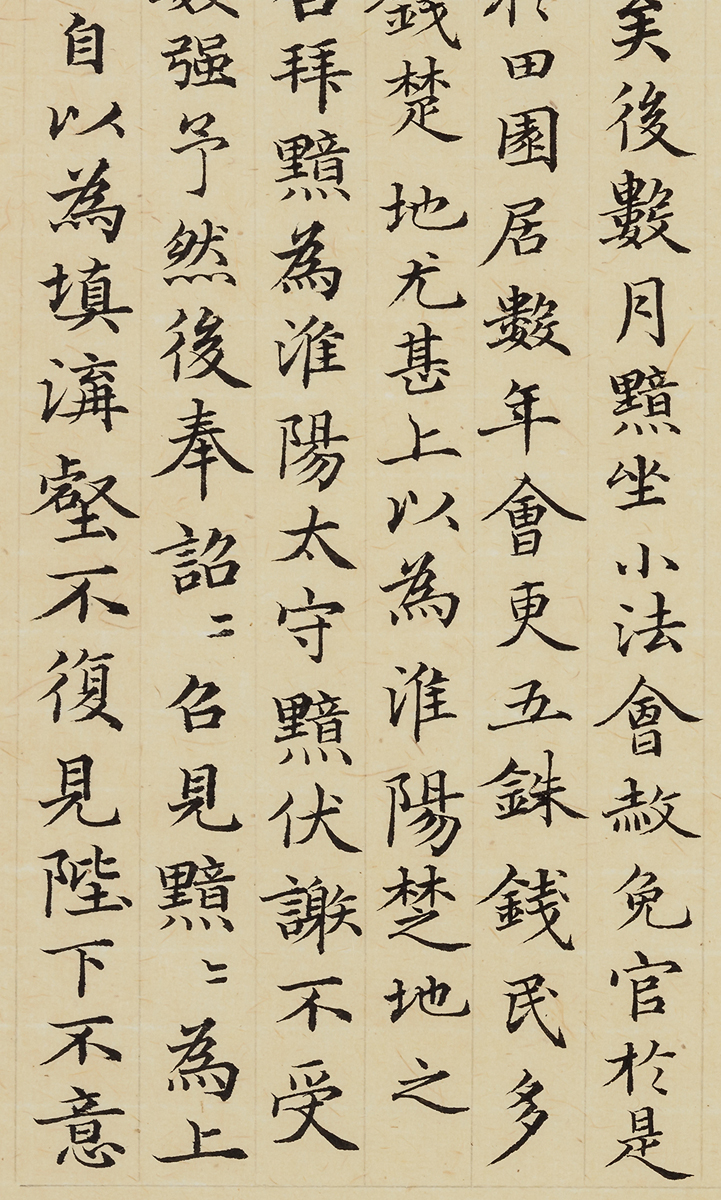 矣後數月黯坐小法會赦免官於是
於田園居數年會更五銖錢民多
錢楚地尤甚上以為淮陽楚地之
召拜黯為淮陽太守黯伏謝不受
數强予然後奉詔〻召見黯〻為上
自以為填溝壑不復見陛下不意